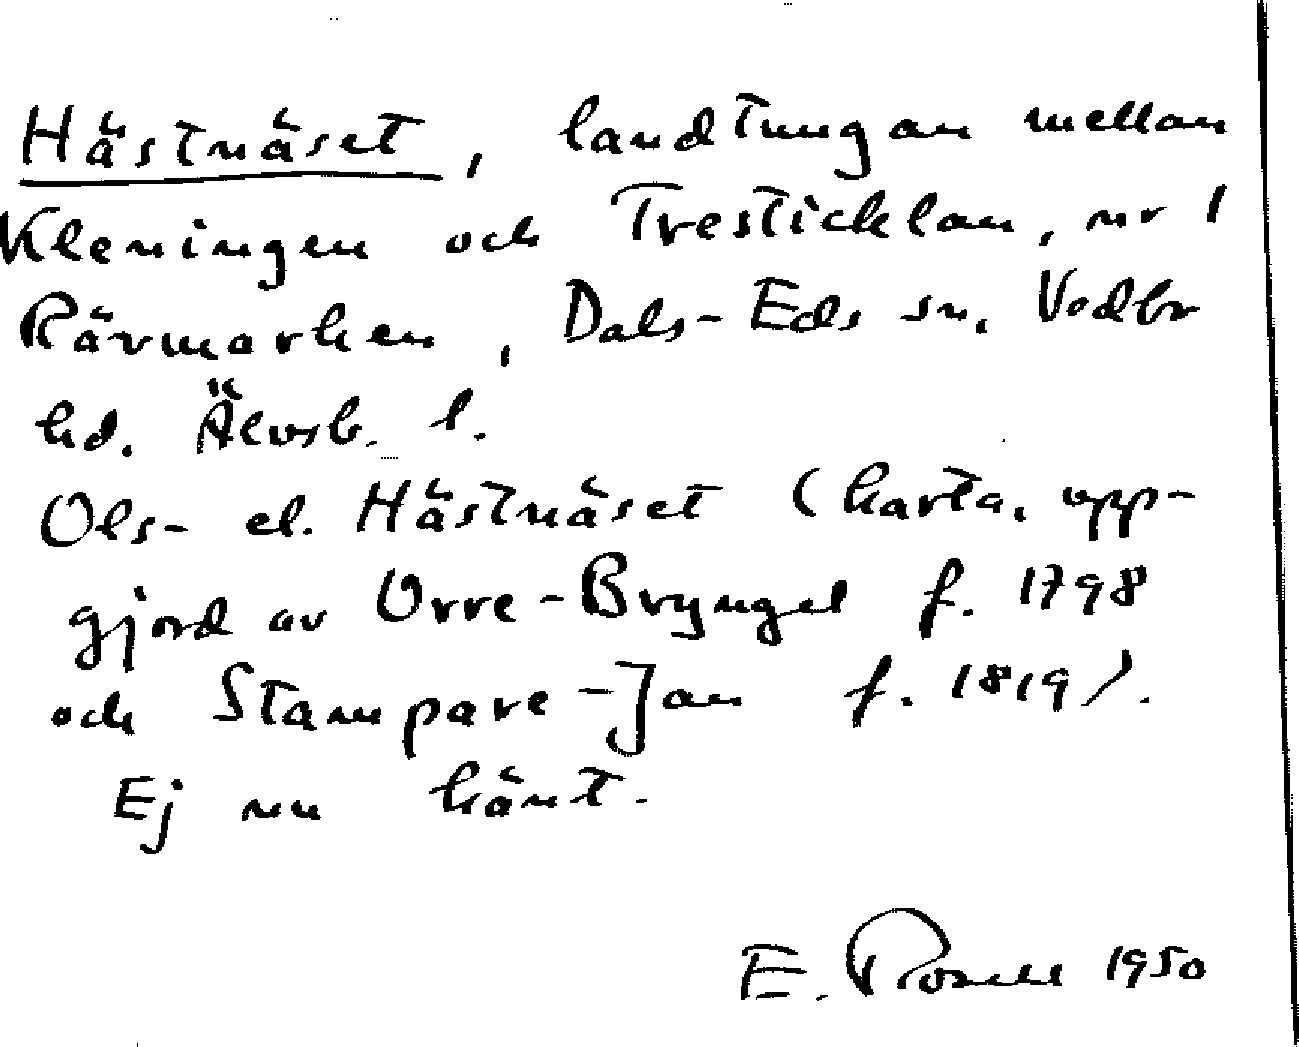 Hästnäset, landtungan mellan
Kleningen och Tresticklan, nr 1
Rävmarken, Dals-Eds sn. Vedbr
hd. Älvsb. l.
Ols- el. Hästnäset (karta, upp-
gjord av Orre-Bryngel f. 1798
och Stampare-Jan f. 1819).
Ej nu känt.
E. Rosell 1950